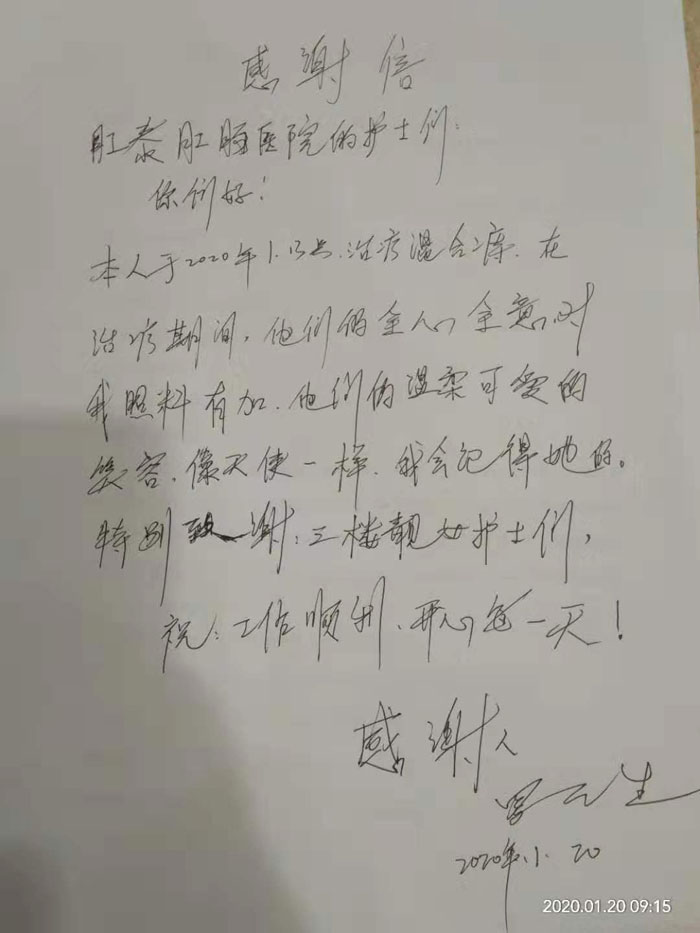 感谢信
肛泰肛肠医院的护士们:
你们好!
本人于2020年1.13去.治疗混合痔.在
治疗期间,他们的全心全意对
我照料有加.他们的温柔可爱的
笑容.像天使一样.我会记得她的。
特别致谢:三楼靓女护士们,
祝:工作顺利.开心每一天!
感谢人
2020年.1.20
2020.01.20 09:15